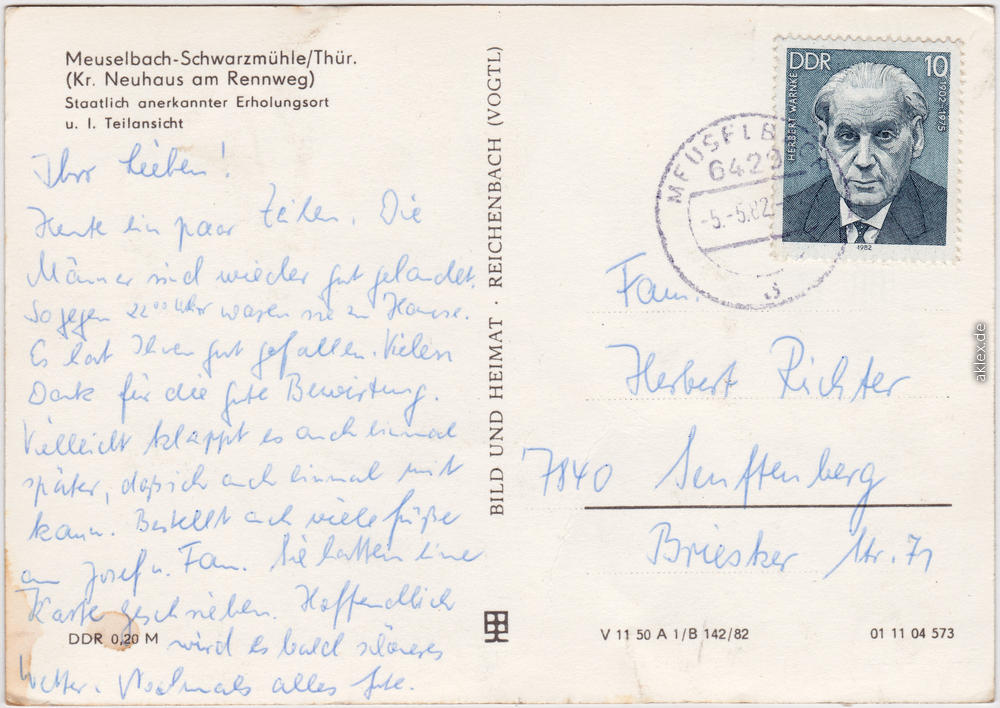 Meuselbach-Schwarzmühle/Thür.
(Kr. Neuhaus am Rennweg)
Staatlich anerkannter Erholungsort
u. l. Teilansicht
Ihr Lieben!
Heute ein paar Zeilen. Die
Männer sind wieder gut gelandet.
So gegen 22⁰⁰ Uhr waren sie zu Hause.
Es hat Ihnen gut gefallen. Vielen
Dank für die gute Bewirtung.
Vielleicht klappt es auch einmal
später, daß ich auch einmal mit
kann. Bestellt auch viele Grüße
an Josef u. Fam. Sie hatten eine
Karte geschrieben. Hoffendlich
wird es bald schöneres
Wetter. Nochmals alles Gute.
DDR 0,20 M
BILD UND HEIMAT · REICHENBACH (VOGTL)
DDR 10
HERBERT WARNKE
1902-1975
1982
MEUSELB
6429
-5.-5.82
Fam.
Herbert Richter
7840 Senftenberg
Briesker Str. 71
V 11 50 A 1/B 142/82
01 11 04 573
aklex.de